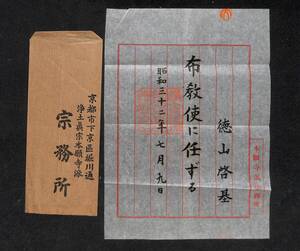 京都市下京区堀川通
浄土真宗本願寺派
宗務所
徳山啓基
布教使に任ずる
昭和三十二年七月九日